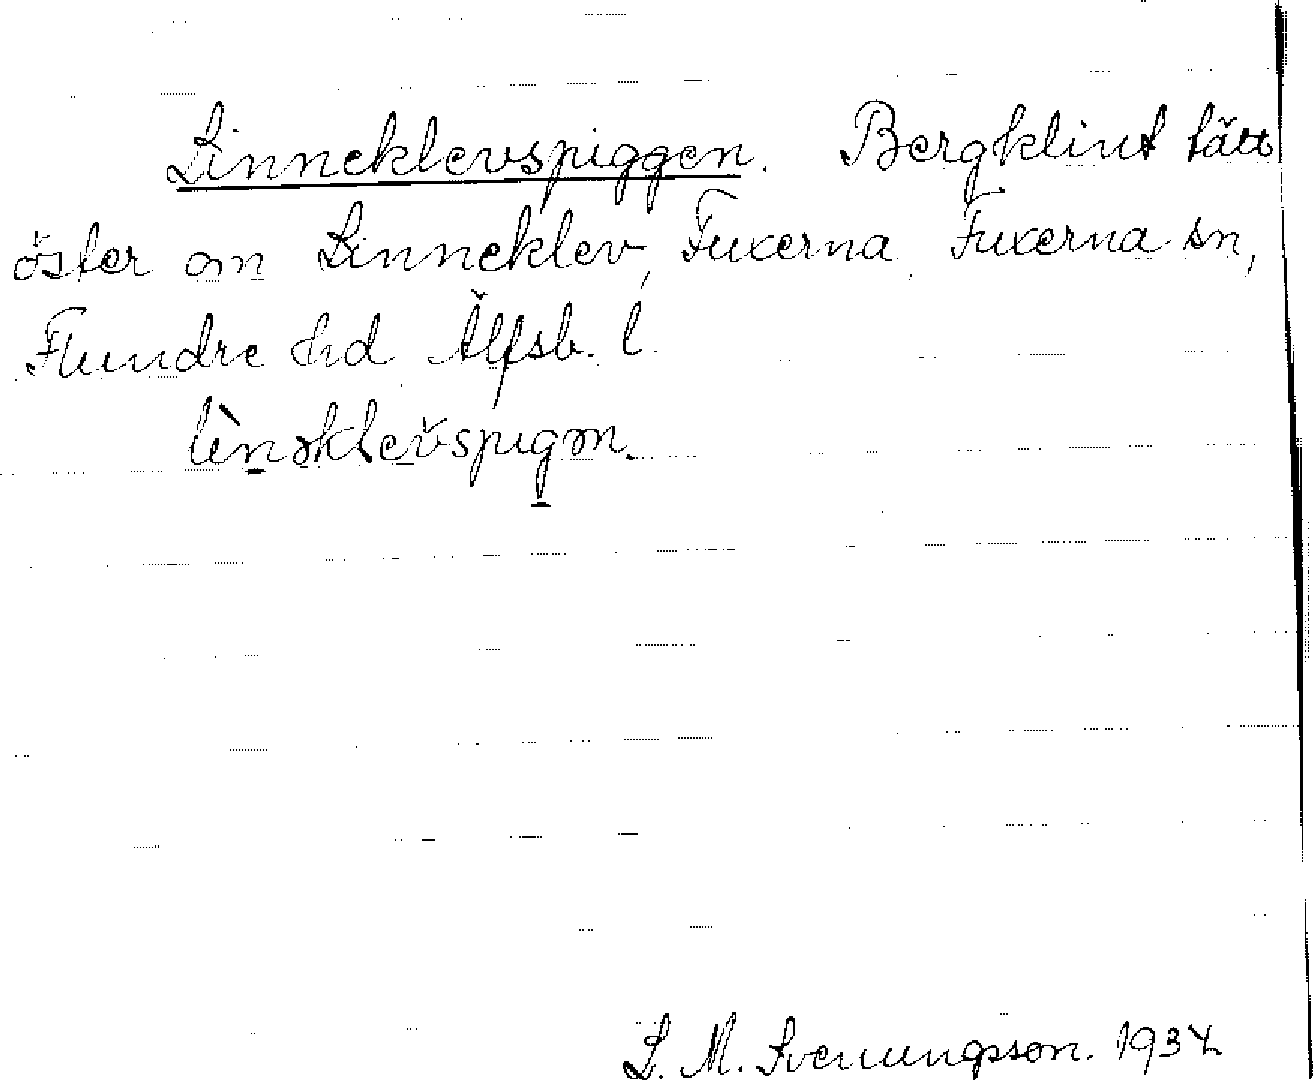 Linneklevspiggen. Bergklint tätt
öster om Linneklev, Fuxerna, Fuxerna sn,
Flundre hd Älfsb. l.
S. M. Svenungsson. 1934